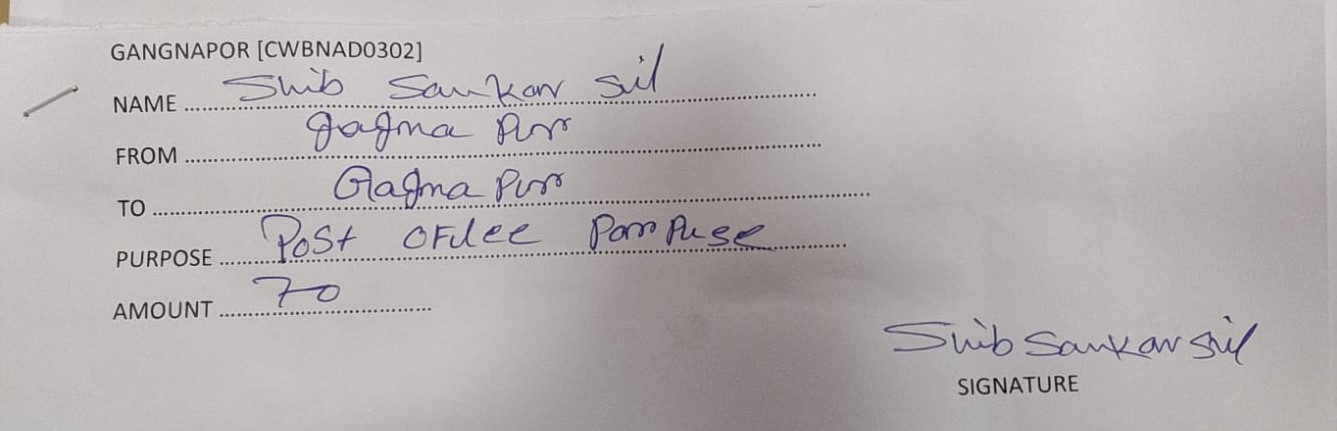 GANGNAPOR [CWBNAD0302]
NAME Shib Sankar Sil
FROM gagna Purr
TO Gagna Purr
PURPOSE Post OFilee Porr Puse
AMOUNT 70
Shib Sankar Sil
SIGNATURE